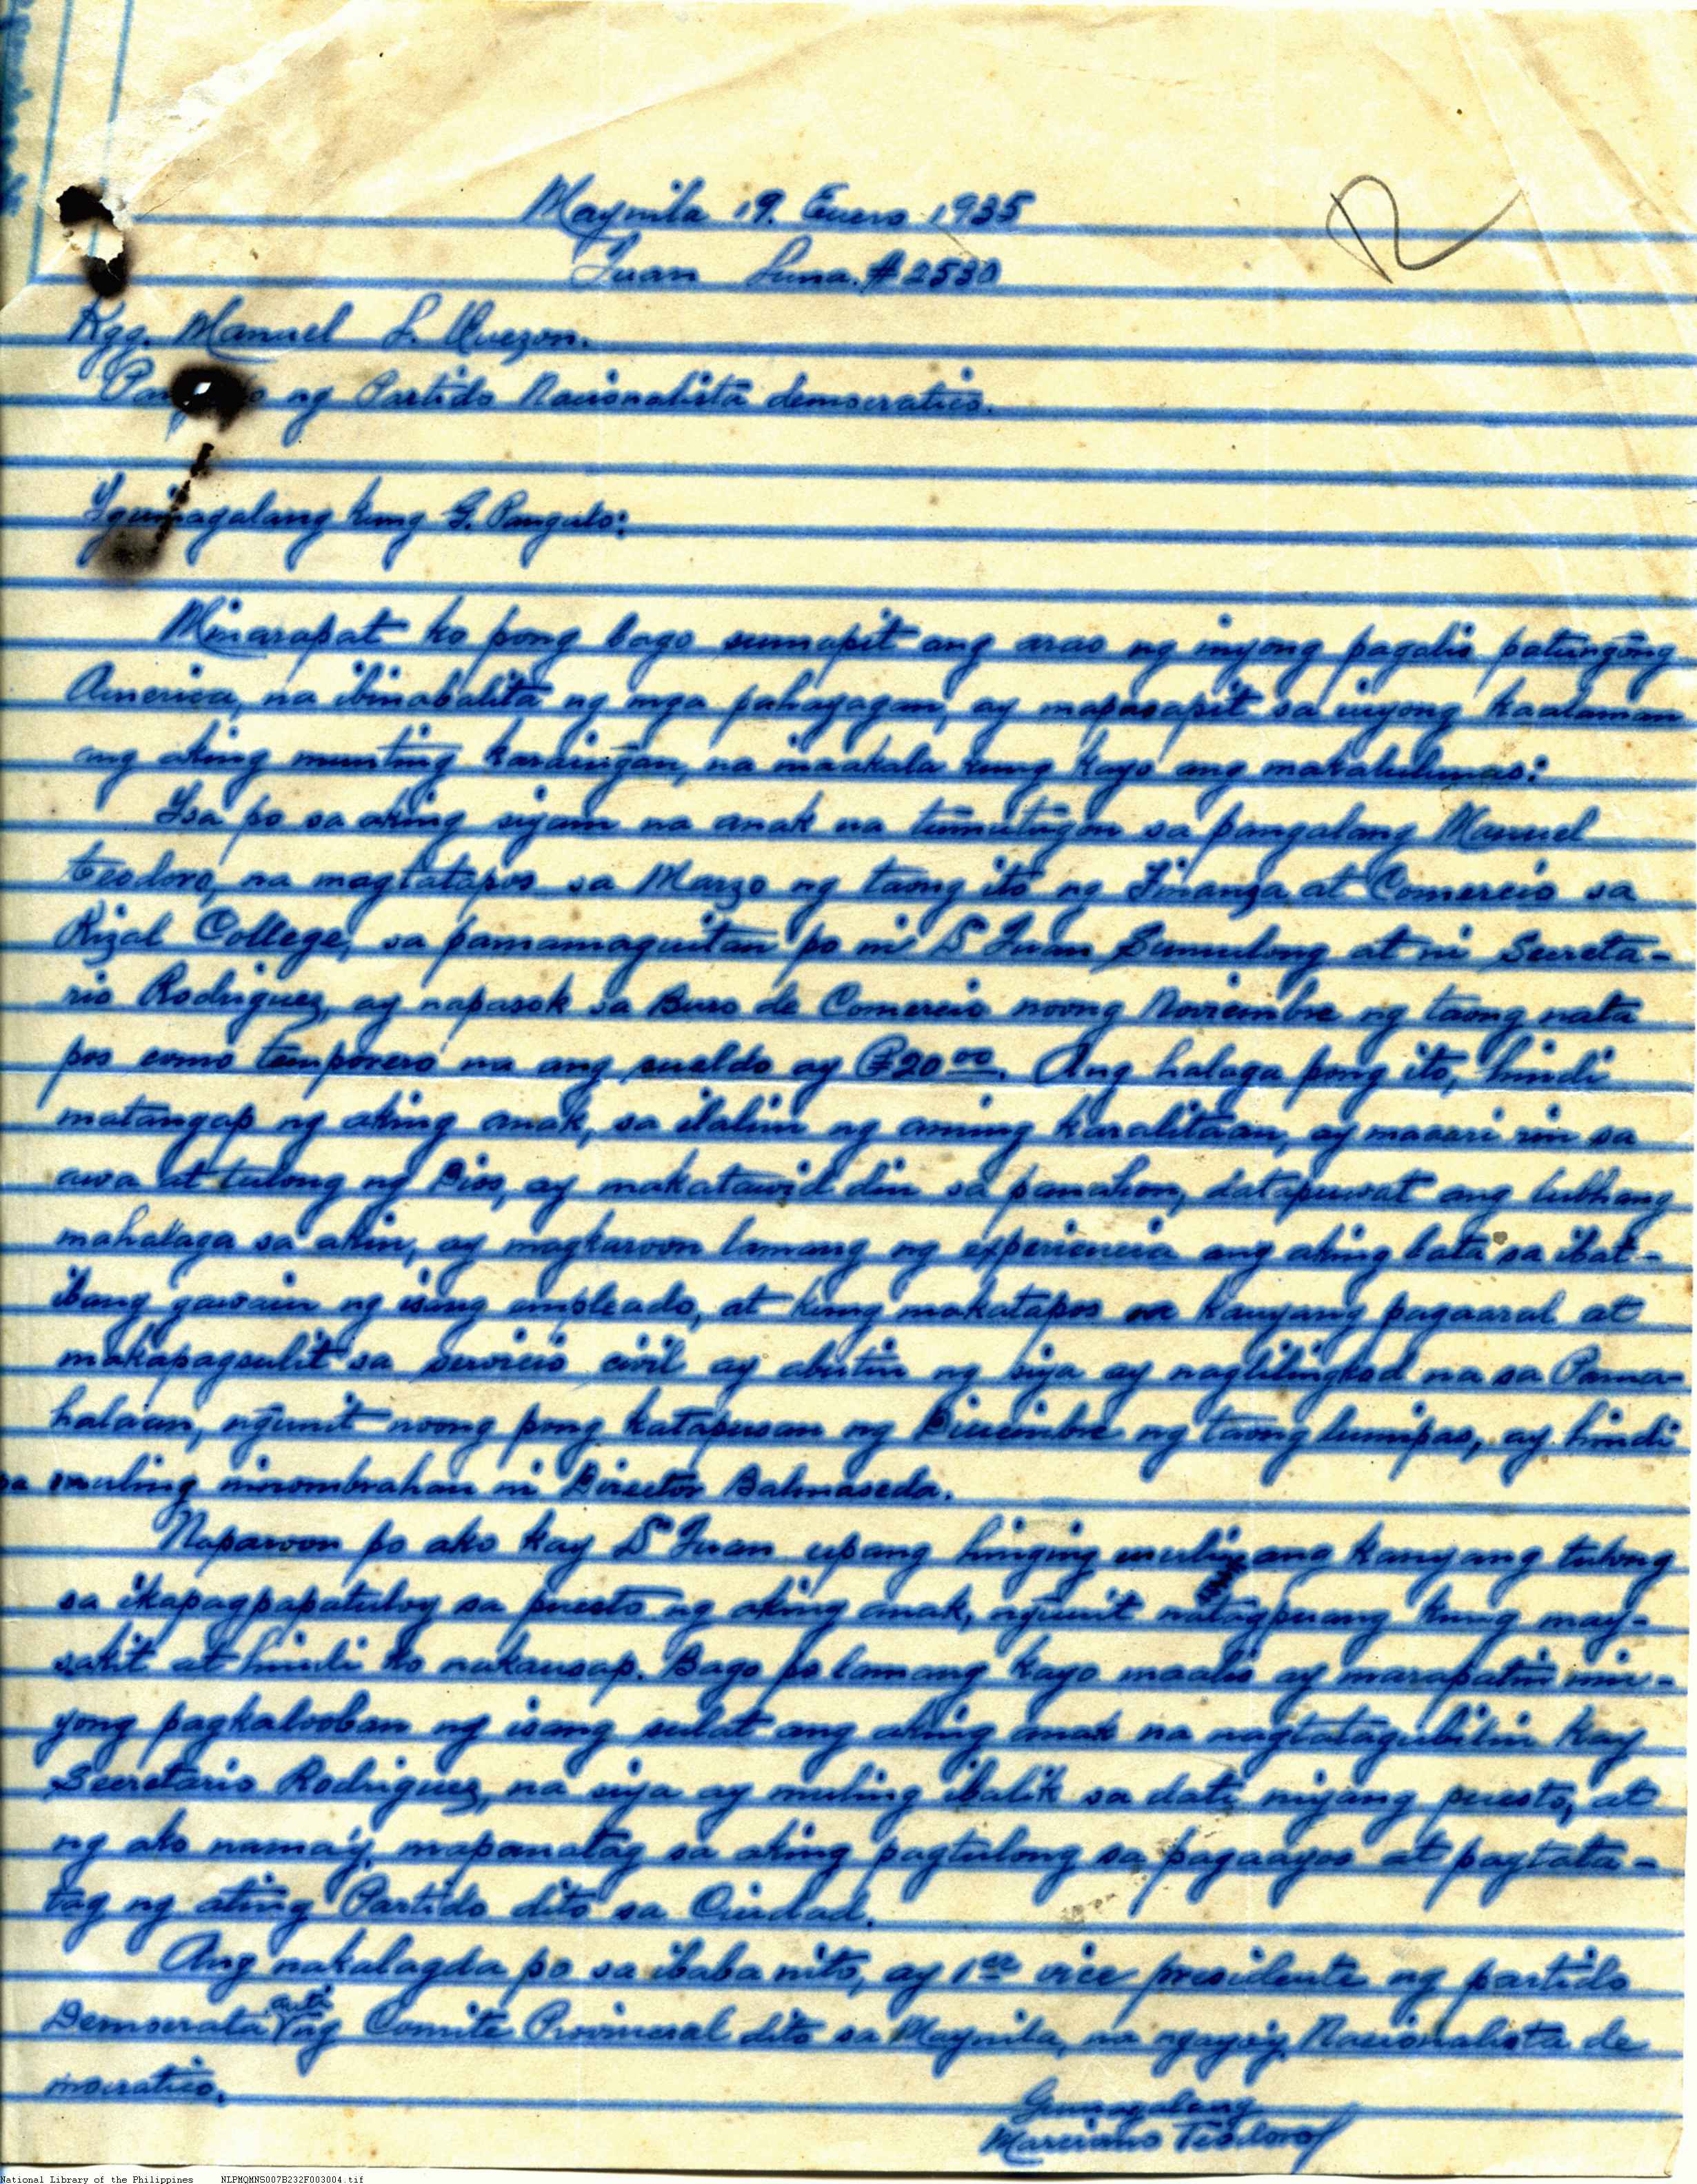 Maynila 19. Enero 1935
Juan Luna. #2530
Kgg. Manuel L. Quezon.
ng Partido Nacionalista democratico.
kung G. Pangulo:
Minarapat ko pong bago sumapit ang arao ng inyong pagalis patungong
America, na ibinabalita ng mga pahayagan, ay mapasapit sa inyong kaalaman
ang aking munting karaingan, na inaakala kung kayo ang makalulunas:
Isa po sa aking siyam na anak na tumutugon sa pangalang Manuel
Teodoro, na magtatapos sa Marzo ng taong ito ng Finanza at Comercio sa
Rizal College, sa pamamaguitan po ni D Juan Sumulong at ni Secreta-
rio Rodriguez, ay napasok sa Buro de Comercio noong Noviembre ng taong nata
pos como temporero na ang sueldo ay ₱20.00. Ang halaga pong ito, hindi
matangap ng aking anak, sa ilalim ng aming karalitaan, ay maaari rin sa
awa at tulong ng Dios, ay makatawid din sa panahon, datapuwat ang lubhang
mahalaga sa akin, ay magkaroon lamang ng experiencia ang aking bata sa ibat-
ibang gawain ng isang empleado, at kung makatapos sa kanyang pagaaral at
makapagsulit sa servicio civil ay abutin ng siya ay naglilingkod na sa Pama-
halaan, ngunit noong pong katapusan ng Diciembre ng taong lumipas, ay hindi
na muling ninombrahan ni Director Balmaseda.
Naparoon po ako kay D Juan upang hinging muli ang kanyang tulong
sa ikapagpapatuloy sa puesto ng aking anak, ngunit natagpuang kung may-
sakit at hindi ko nakausap. Bago po lamang kayo maalis ay marapatin nin-
yong pagkalooban ng isang sulat ang aking anak na nagtatagubilin kay
Secretario Rodriguez, na siya ay muling ibalik sa dati niyang puesto, at
ng ako nama'y, mapanatag sa aking pagtulong sa pagaayos at pagtata-
tag ng ating Partido dito sa Ciudad.
Ang nakalagda po sa ibaba nito, ay 1er vice presidente ng partido
Democrata anti ng Comite Provincial dito sa Maynila, na ngayo'y Nacionalista de
mocratico.
Gumagalang
Marciano Teodoro
National Library of the Philippines NLPMQMNS007B232F003004.tif